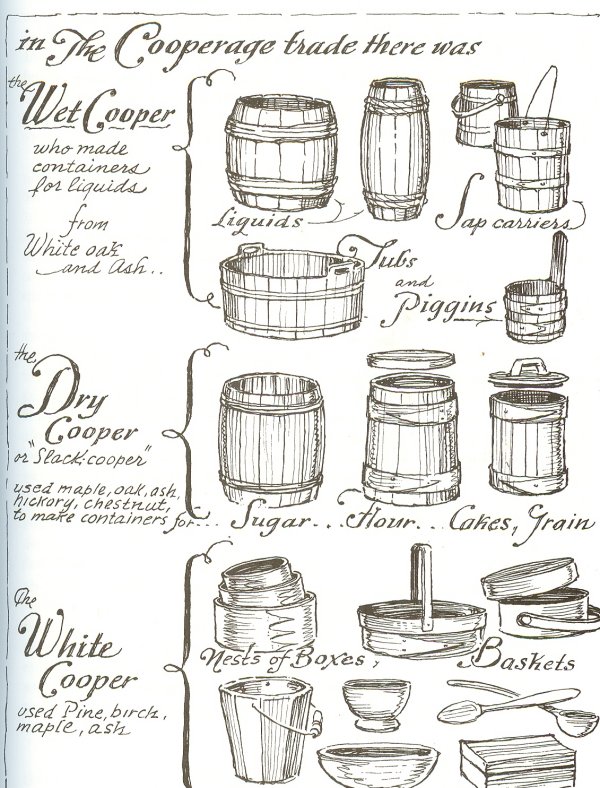 in The Cooperage trade there was
the
Wet Cooper
who made
containers
for liquids
from
White oak
and Ash..
Liquids
Sap carriers
Tubs
and
Piggins
the
Dry
Cooper
or "Slack-cooper"
used maple, oak, ash,
hickory, chestnut,
to make containers for... Sugar... Flour... Cakes, Grain
The
White
Cooper
used Pine, birch,
maple, ash
Nests of Boxes,
Baskets